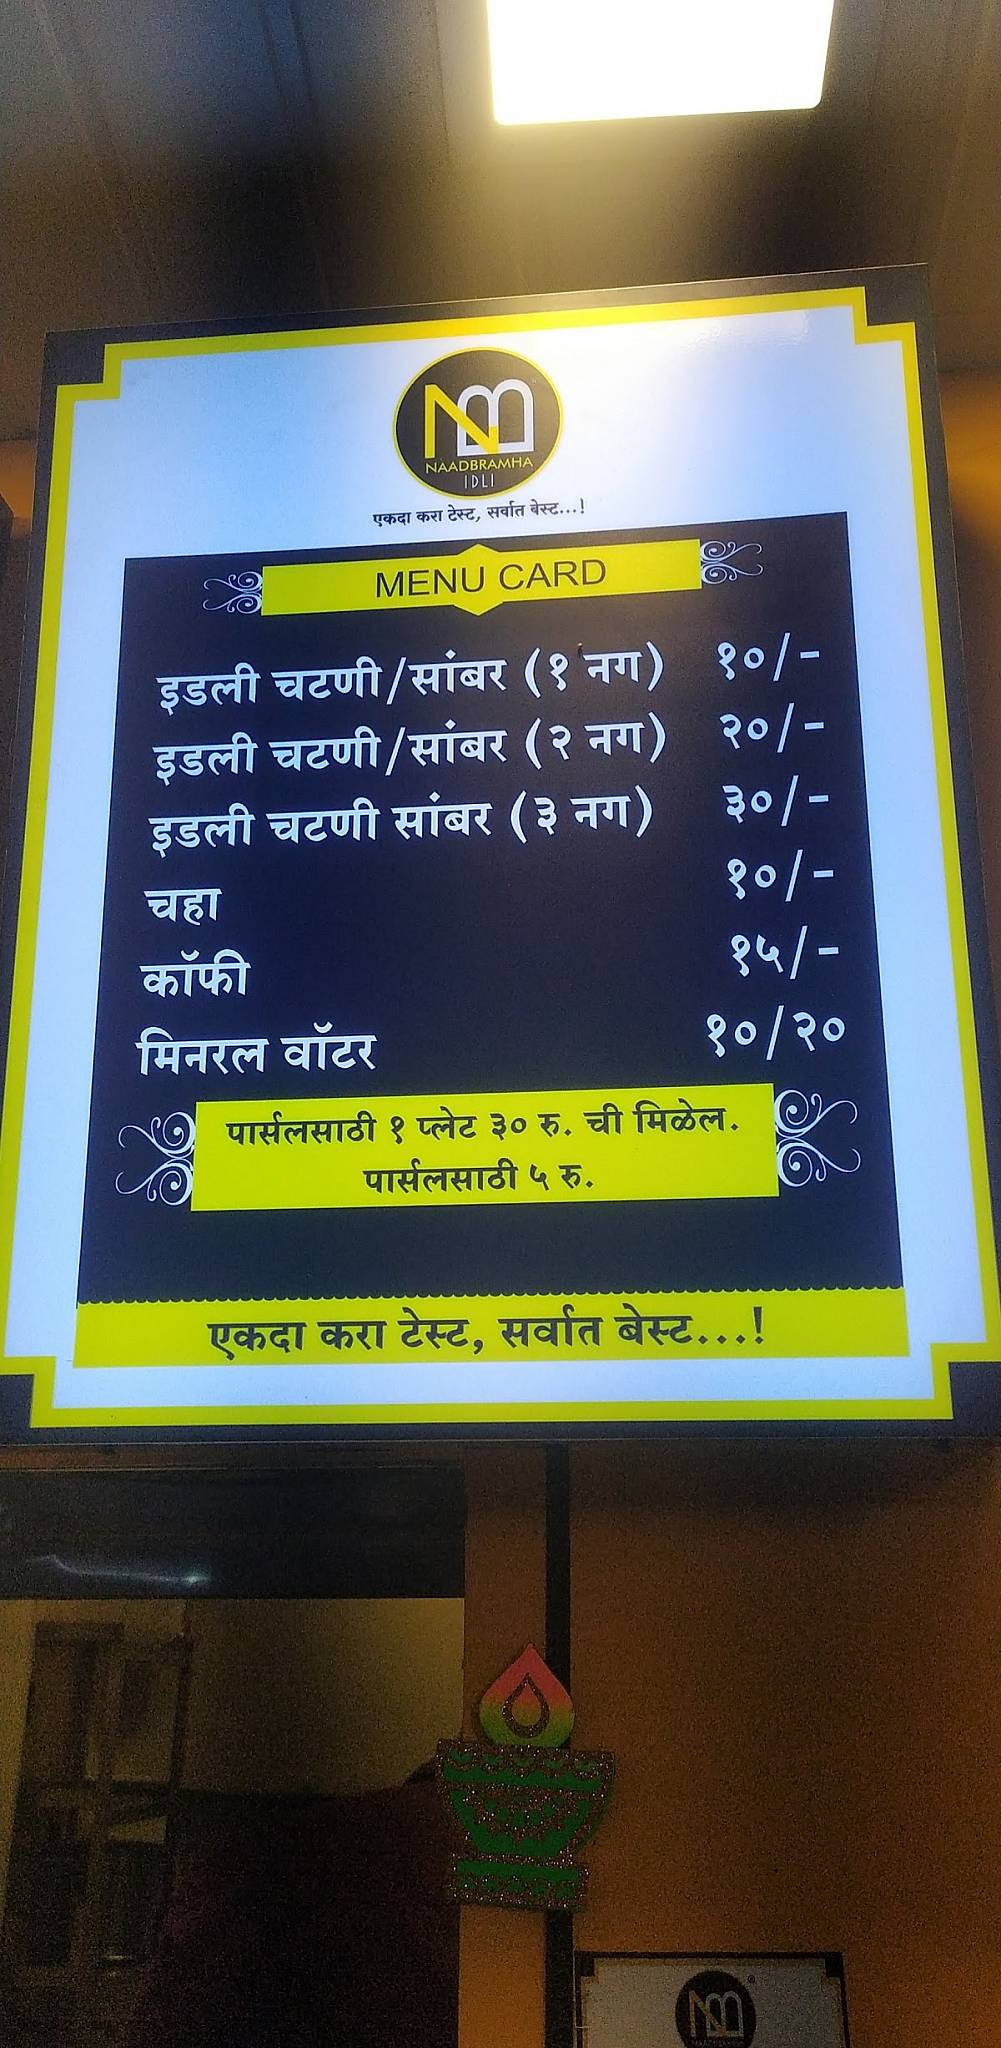 NB
NAADBRAMHA
IDLI
एकदा करा टेस्ट, सर्वात बेस्ट...!
MENU CARD
इडली चटणी/सांबर (१ नग) १०/-
इडली चटणी/सांबर (२ नग) २०/-
इडली चटणी सांबर (३ नग) ३०/-
चहा १०/-
कॉफी १५/-
मिनरल वॉटर १०/२०
पार्सलसाठी १ प्लेट ३० रु. ची मिळेल.
पार्सलसाठी ५ रु.
एकदा करा टेस्ट, सर्वात बेस्ट...!
NB